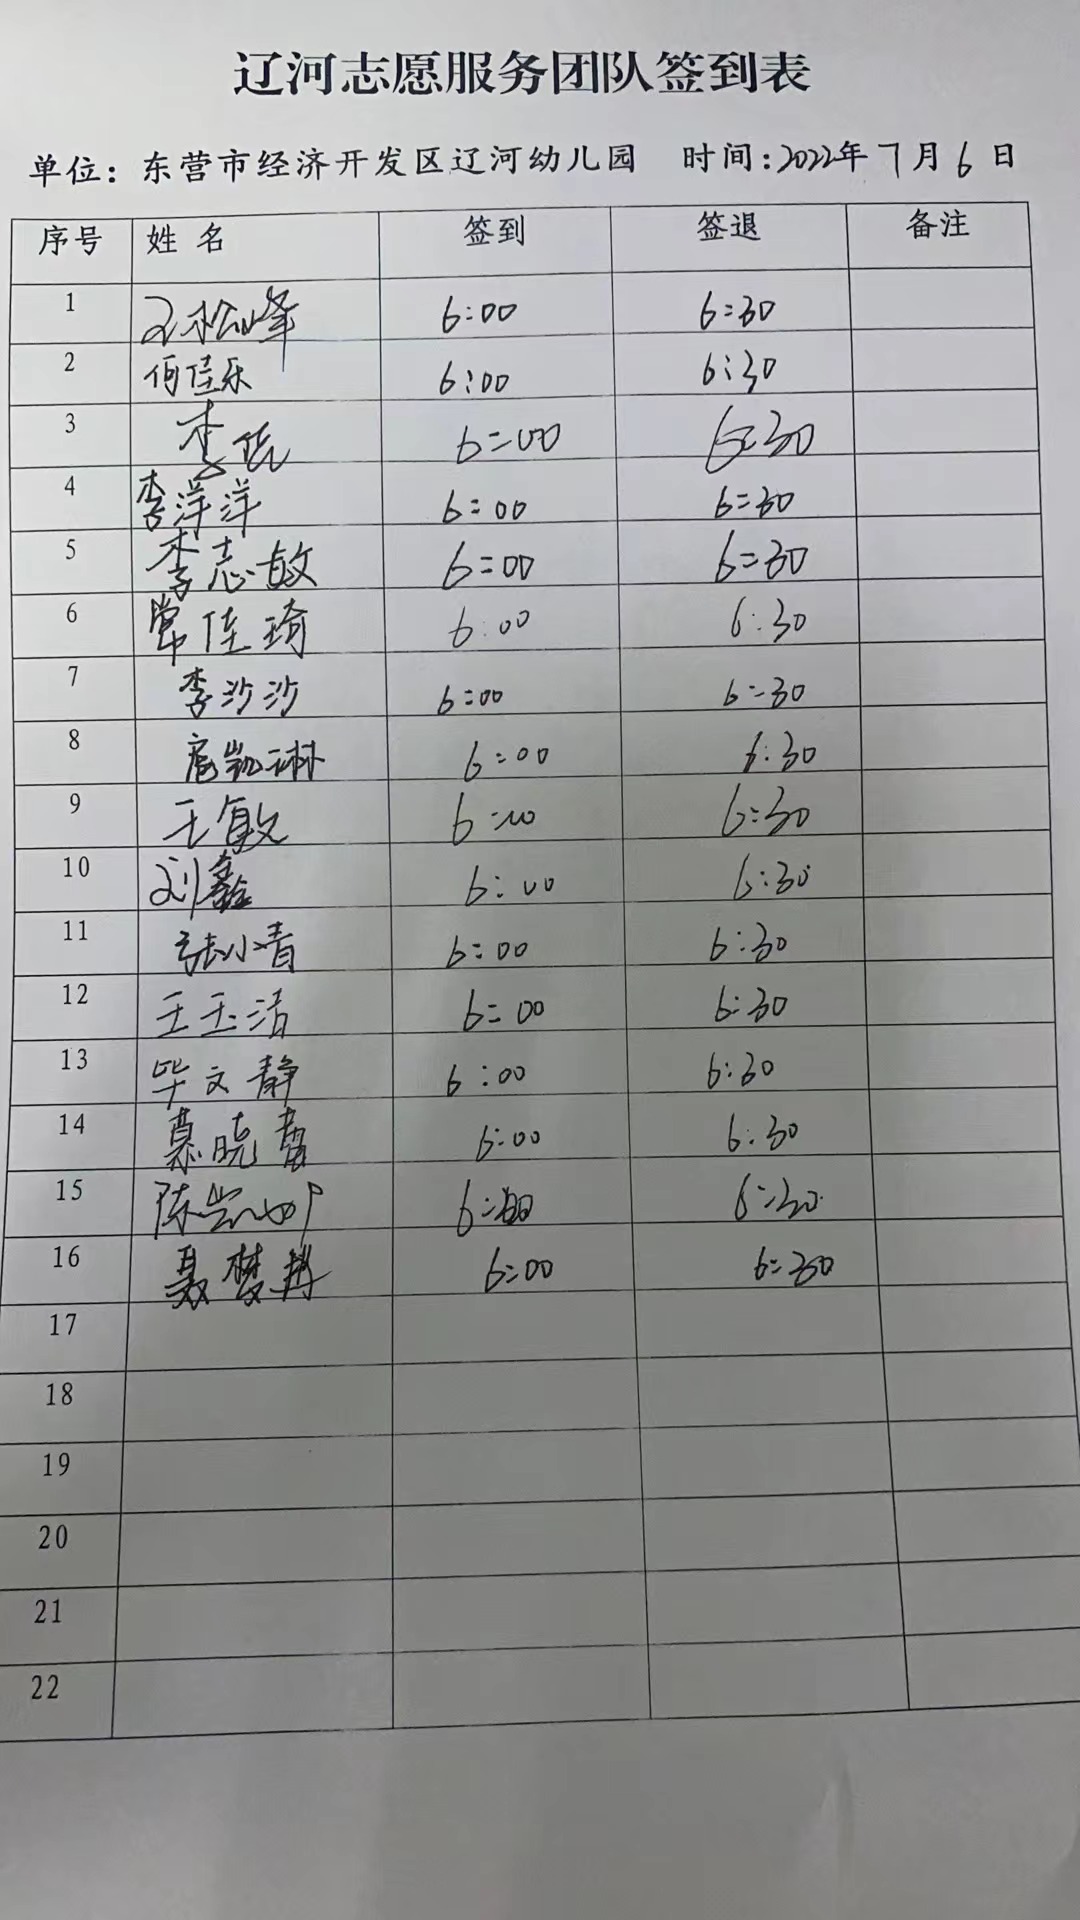 辽河志愿服务团队签到表
单位：东营市经济开发区辽河幼儿园 时间：2022年7月6日
序号 姓名 签到 签退 备注
1 6:00 6:30
2 何佳乐 6:00 6:30
3 李 6:00 6:30
4 李洋洋 6:00 6:30
5 李志敏 6:00 6:30
6 常佳琦 6:00 6:30
7 李沙沙 6:00 6:30
8 6:00 6:30
9 王敏 6:00 6:30
10 刘鑫 6:00 6:30
11 张小青 6:00 6:30
12 王玉洁 6:00 6:30
13 毕文静 6:00 6:30
14 慕晓蕾 6:00 6:30
15 陈 6:00 6:30
16 聂梦 6:00 6:30
17
18
19
20
21
22